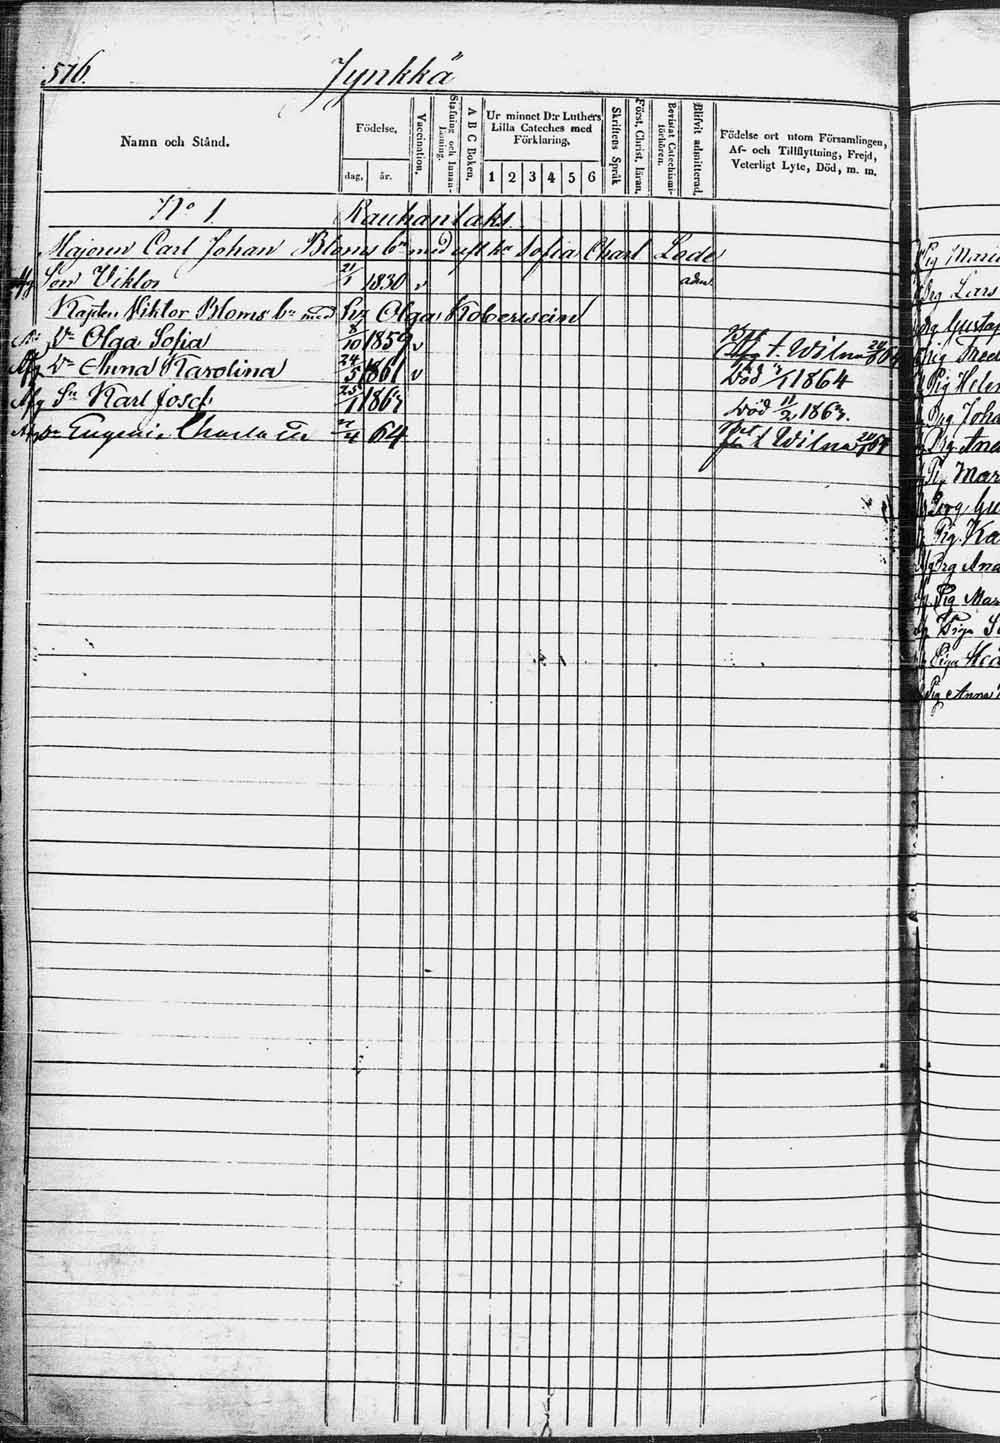 576.
Jynkkä
Namn och Stånd.
Födelse,
dag, år.
Vaccination,
Stafning och Innan-
läsning.
A B C Boken,
Ur minnet D:r Luthers
Lilla Cateches med
Förklaring,
1 2 3 4 5 6
Skriftens Språk
Först, Christ, läran,
Bevistat Catechismi-
förhören.
Blifvit admitterad,
Födelse ort utom Församlingen,
Af- och Tillflyttning, Frejd,
Veterligt Lyte, Död, m. m.
No 1. Rauhanlaks
Majoren Carl Johan Bloms bn med Sofia Charl Lode
Son Viktor 21/1 1830 v adm
Viktor Bloms bn med Olga Robertson
Dr Olga Sofia 8/10 1859 v t. Wilna
Dr Anna Karolina 24/5 1861 v Död 1864
Sn Karl Josef 25/1 1863 Död 11/2 1863.
Dr Eugenie Charlotta 4 64 t Wilna
Pig Maria
Drg Lars
Drg Gustaf
Pig Helen
Drg Joha
Drg And
Mar
Gu
Pig Ka
Drg And
Pig Mar
Piga
Piga Hed
Pig Anna